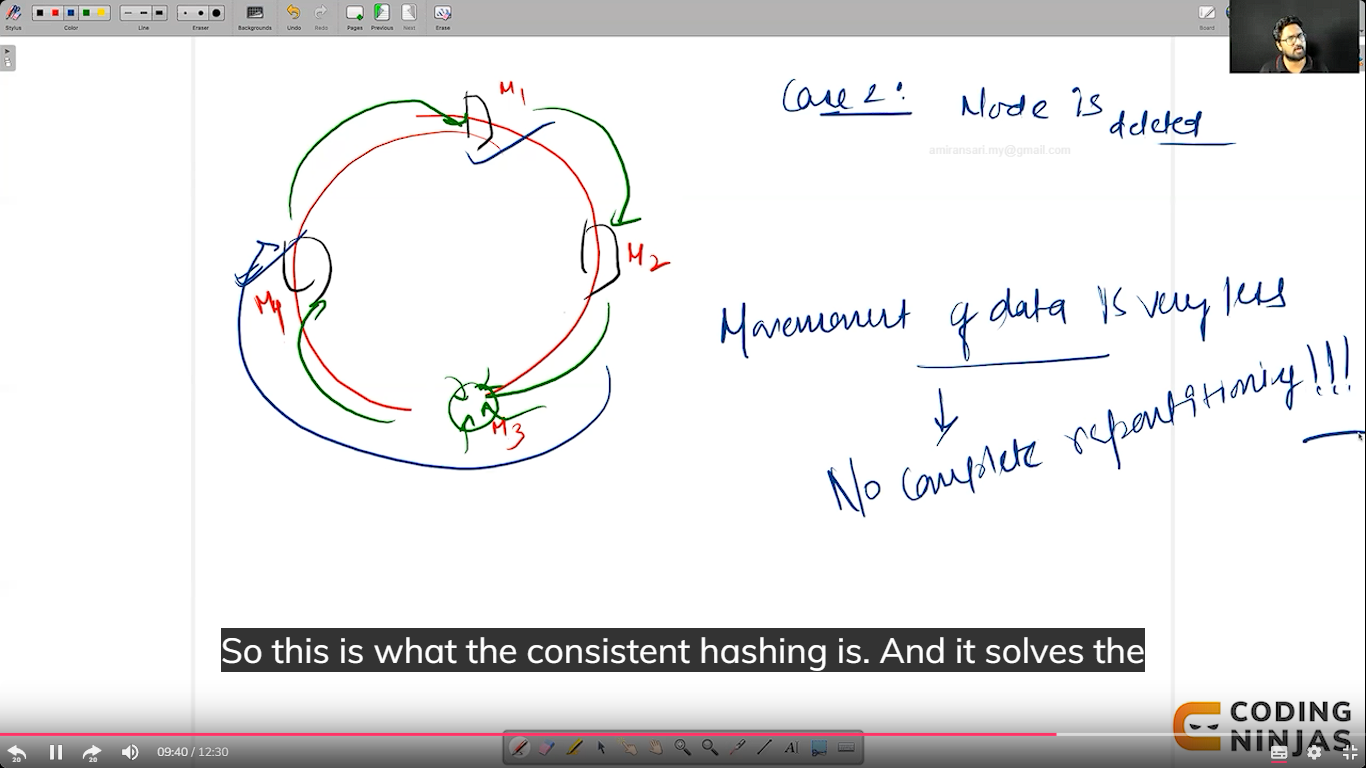 Stylus
Color
Line
Eraser
Backgrounds
Undo
Redo
Pages
Previous
Next
Erase
Board
M1
Case 2: Node is deleted
amiransari.my@gmail.com
M2
M4
M3
Movement of data is very less
No complete repartitioning!!!
So this is what the consistent hashing is. And it solves the
CODING
NINJAS
20
20
09:40 / 12:30